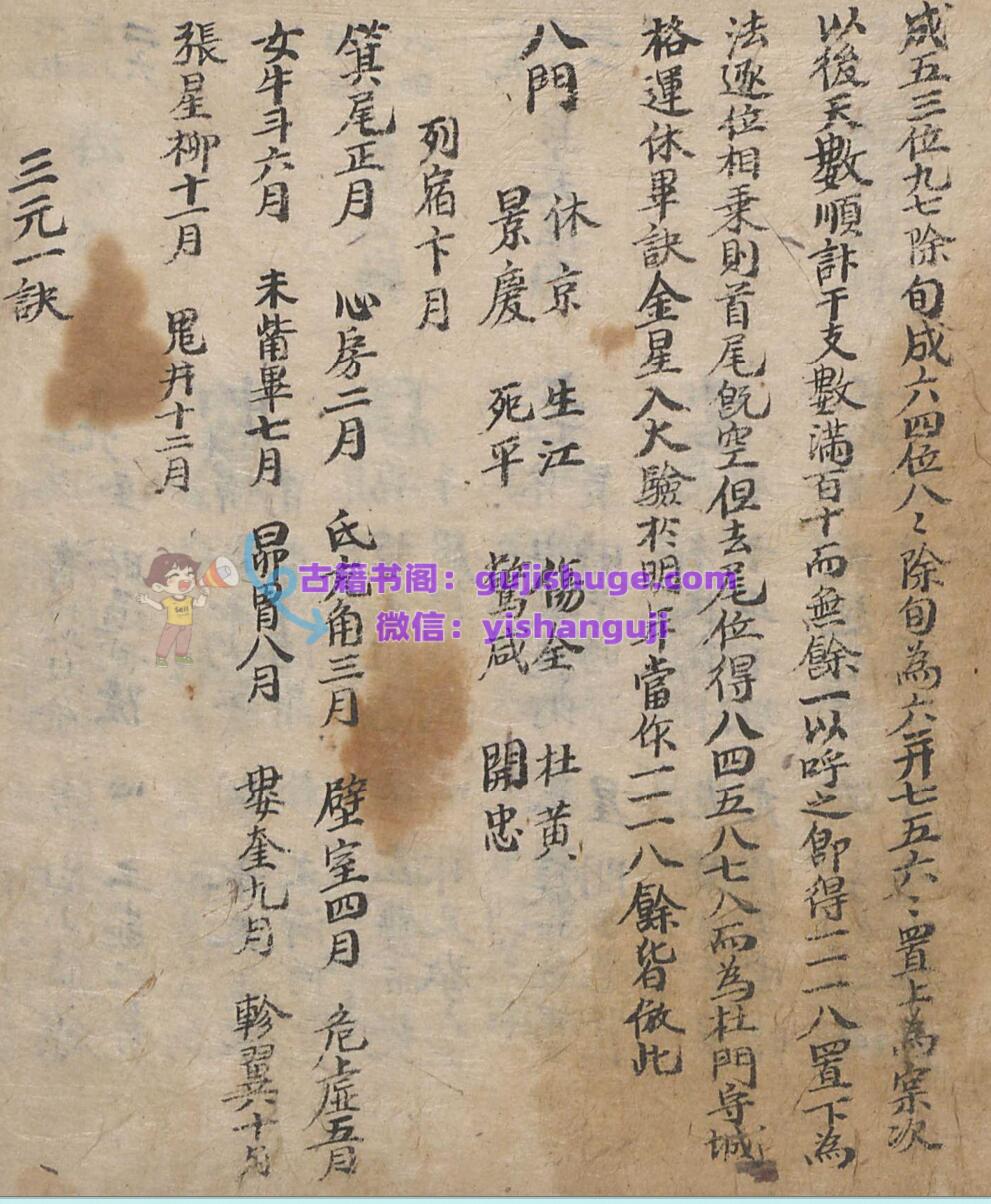 成五三位九七除旬成六四位八〻除旬為六并七五六〻置上為宗次
以後天數順計干支數滿百十而無餘一以呼之卽得一二一八置下為
法逐位相乗則首尾旣空但去尾位得八四五八七八而為杜門守城
格運休畢訣金星入火驗於明年當作一二一八餘皆倣此
八門 休京 生江 傷全 杜黃
景慶 死平 驚咸 開忠
列宿卞月
箕尾正月 心房二月 氐亢角三月 壁室四月 危虛五月
女牛斗六月 未觜畢七月 昴胃八月 婁奎九月 軫翼十月
張星柳十一月 鬼井十二月
三元一訣
古籍书阁：gujishuge.com
微信：yishanguji